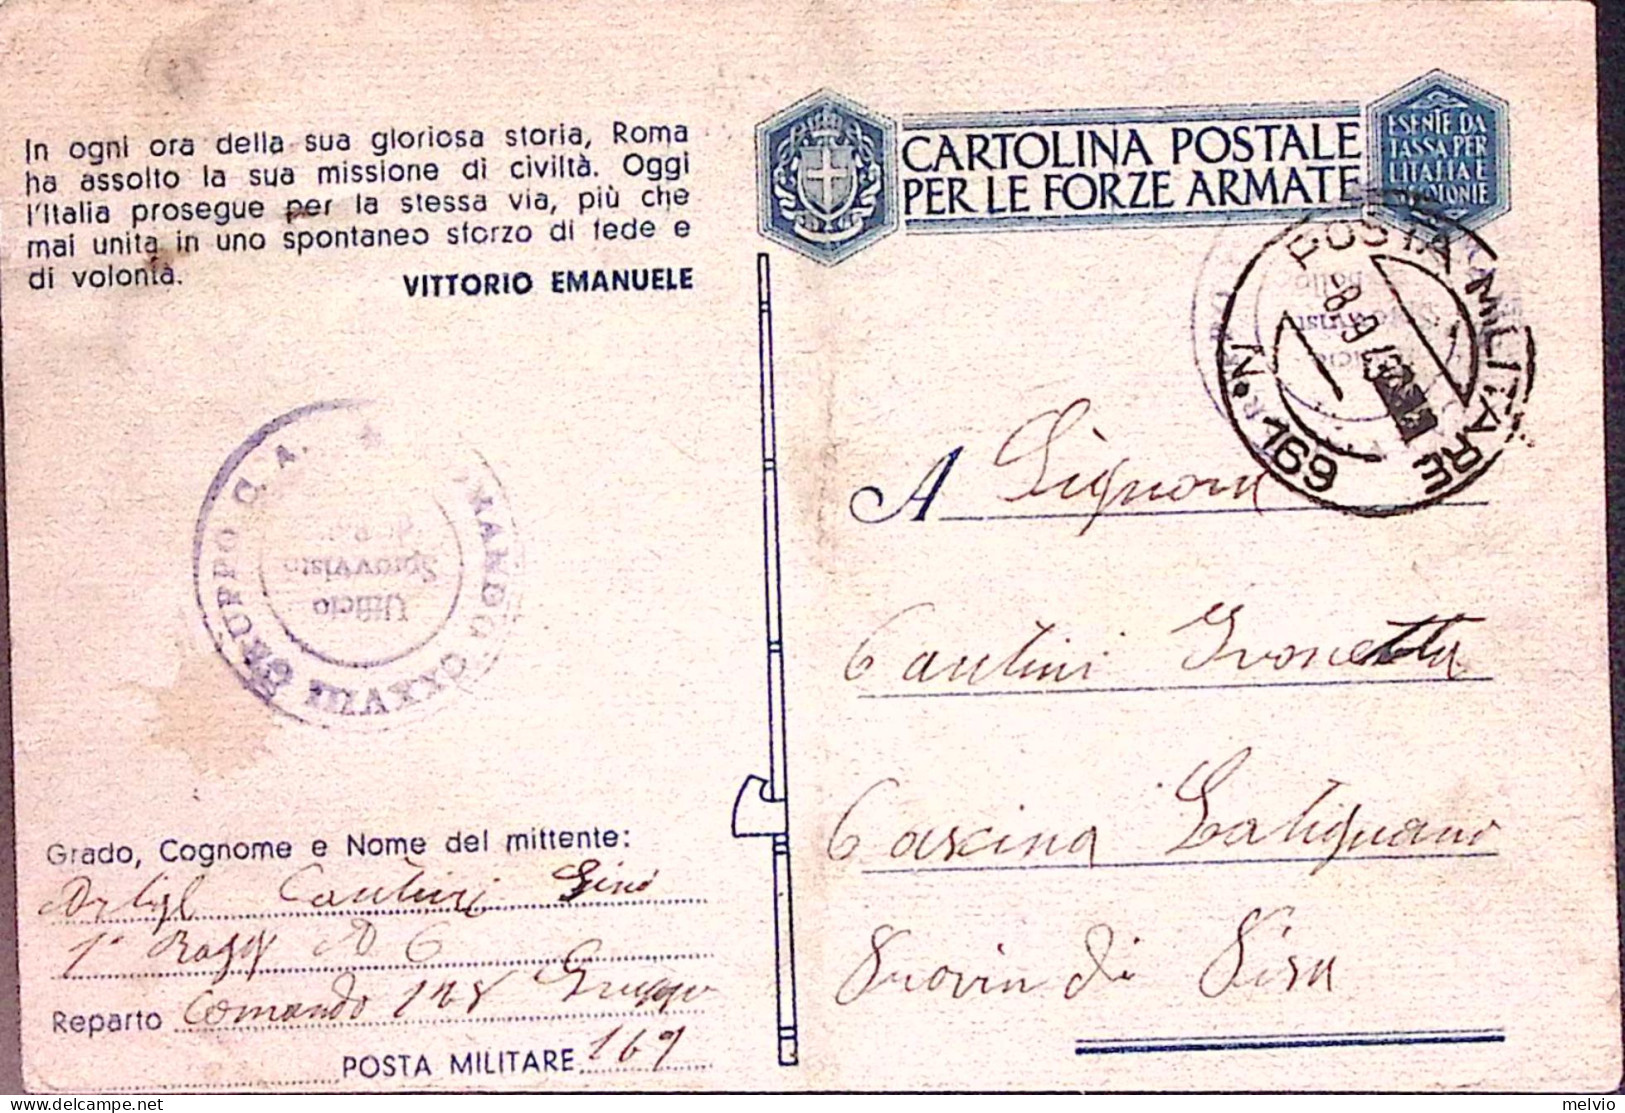 In ogni ora della sua gloriosa storia, Roma
ha assolto la sua missione di civiltà. Oggi
l'Italia prosegue per la stessa via, più che
mai unita in uno spontaneo sforzo di fede e
di volontà.
VITTORIO EMANUELE
CARTOLINA POSTALE
PER LE FORZE ARMATE
ESENTE DA
TASSA PER
L'ITALIA E
COLONIE
POSTA MILITARE
N. 169
GRUPPO C. A.
Ufficio
Sprovvisto
A Signora
Cantini Ivonetta
Cascina Latignano
Provin di Pisa
Grado, Cognome e Nome del mittente:
Cantini Gino
1° Ragg
Reparto Comando 128 Gruppo
POSTA MILITARE 169
melvio